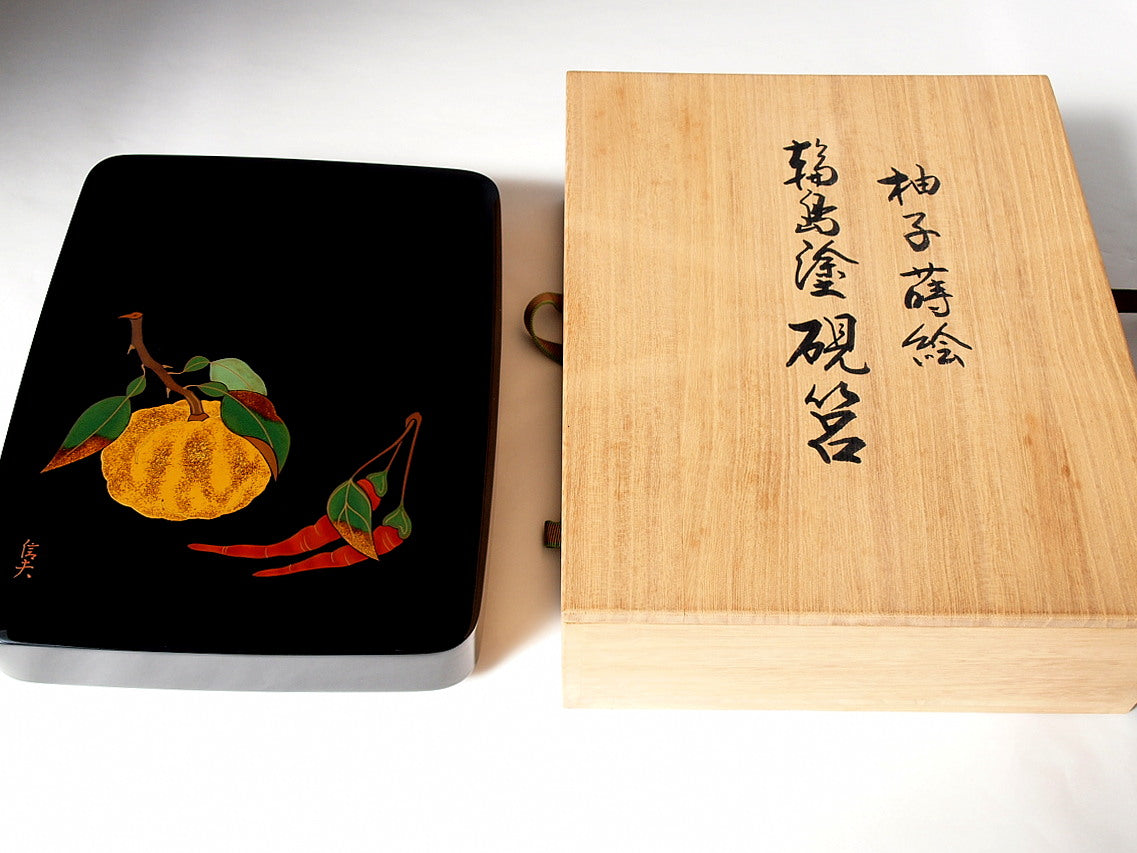 柚子蒔絵
輪島塗硯筥
信夫